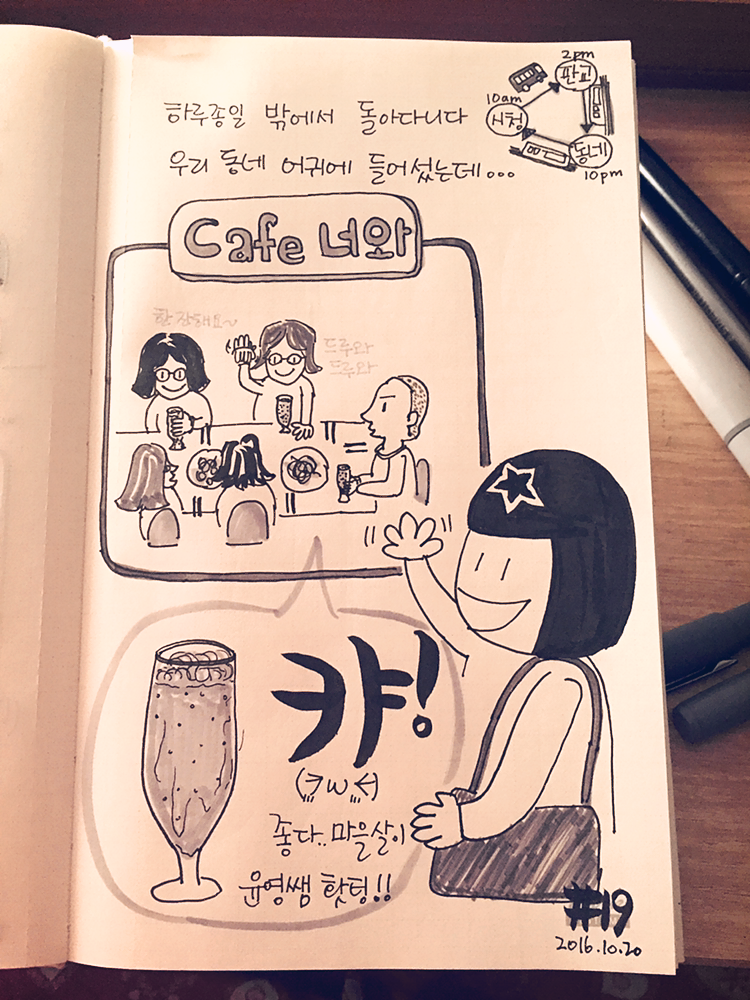 하루종일 밖에서 돌아다니다
우리 동네 어귀에 들어섰는데...
2pm
판교
10am
시청
동네
10pm
Cafe 너와
한잔해요~
드루와
드루와
캬!
(ㅋㅑω ㅑ)
좋다.. 마을살이
윤영쌤 핫팅!!
#19
2016.10.20